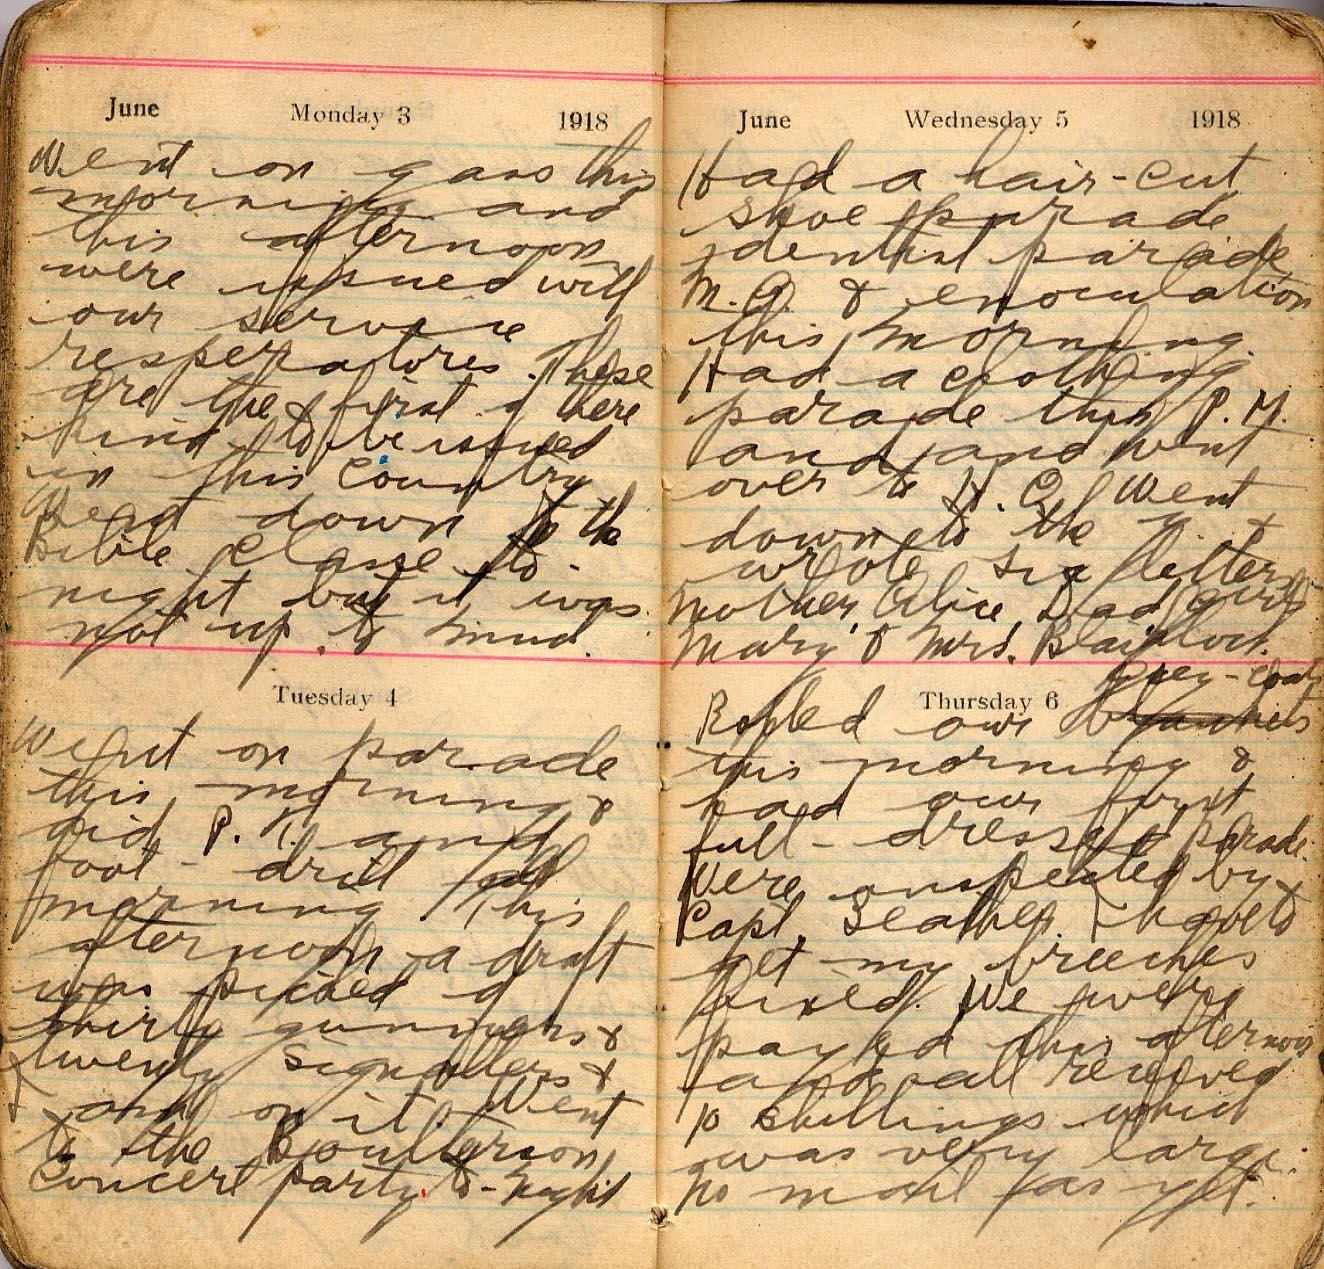 June Monday 3 1918
Went on gass this
morning and
this afternoon
were issued with
our service
resperatores. These
are the first of there
kind to be issued
in this country
Went down to the
Bible classe to-
night but it was
not up to mind.
Tuesday 4
Went on parade
this morning &
did P. T. and
foot-drill all
morning This
afternoon a draft
was picked of
thirty gunners &
twenty signallers &
I and on it. Went
to the
Concert party to-night
June Wednesday 5 1918
Had a hair-cut
shoe parade
dentist parade
M.O. & enoculation
this morning.
Had a clothing
parade this P.M.
and and went
over to H.Q. Went
down to the Y &
wrote six letters
Mother, Alice, Dad,
Mary & Mrs. Blaylock.
Thursday 6
grey-coats
Rolled our blankets
this morning &
had our first
full-dressed parade.
Were inspected by
Capt. I have to
get my breeches
fixed. We were
payed this afternoon
and all received
10 shillings which
was very large.
No mail as yet.